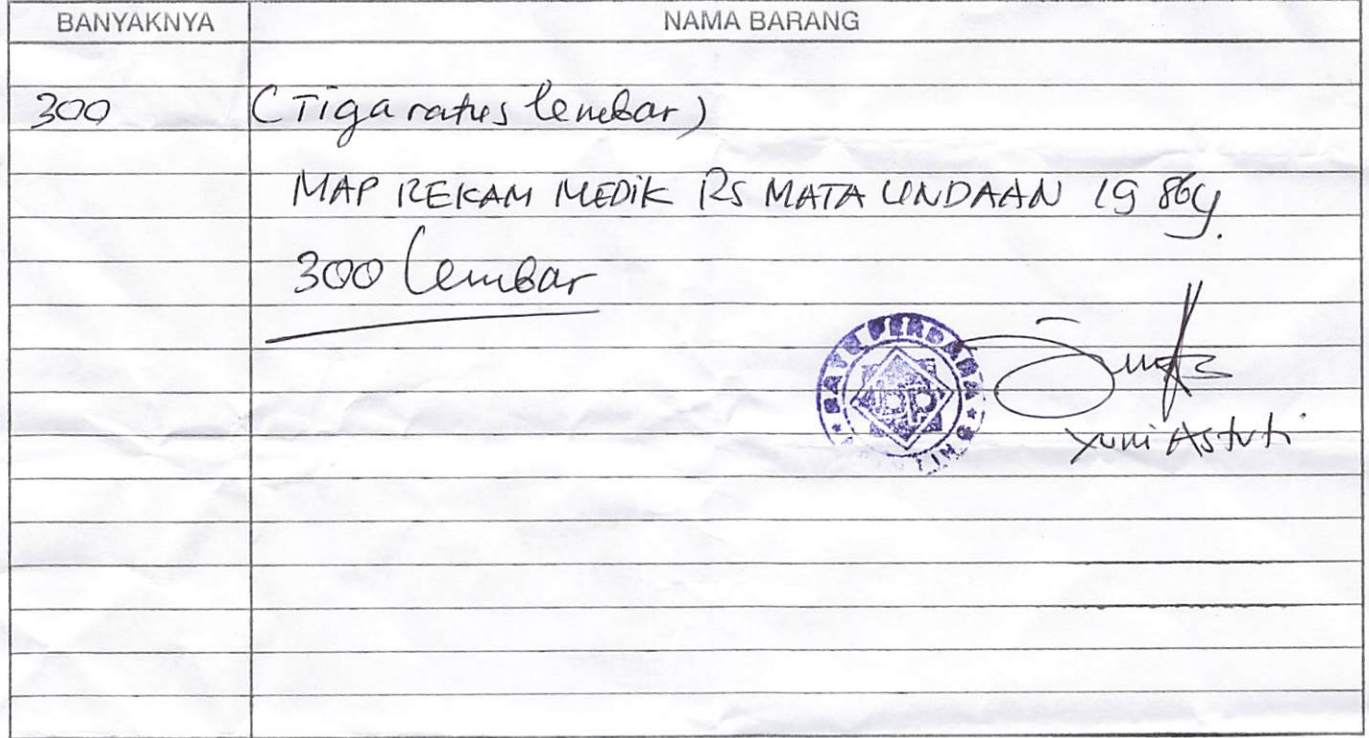 BANYAKNYA NAMA BARANG
300 (Tiga ratus lembar)
MAP REKAM MEDIK RS MATA UNDAAN
300 lembar
BAYU PERDANA
BP
Yuni Astuti